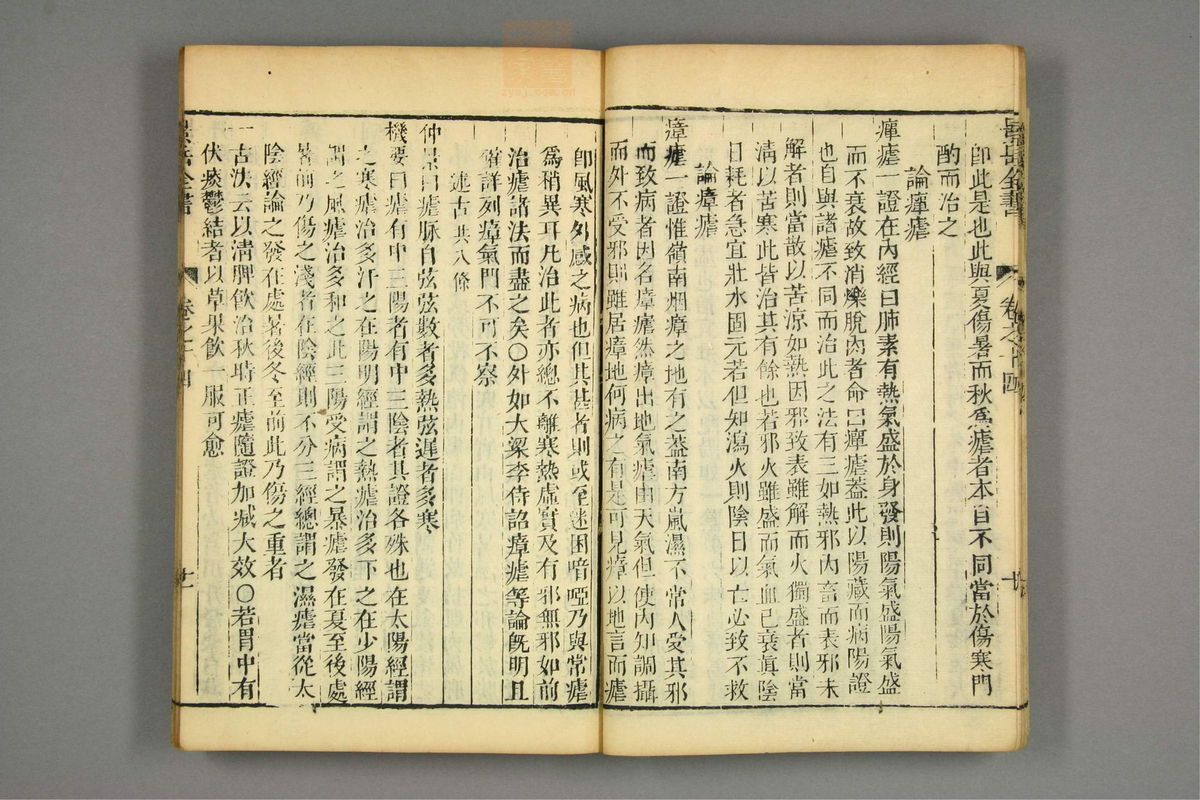 景岳全書 卷之十四
卽此是也此與夏傷暑而秋爲瘧者本自不同當於傷寒門
酌而治之
論癉瘧
癉瘧一證在內經曰肺素有熱氣盛於身發則陽氣盛陽氣盛
而不衰故致消爍脫肉者命曰癉瘧葢此以陽藏而病陽證
也自與諸瘧不同而治此之法有三如熱邪內畜而表邪未
解者則當散以苦涼如熱因邪致表雖解而火獨盛者則當
淸以苦寒此皆治其有餘也若邪火雖盛而氣血已衰眞陰
日耗者急宜壯水固元若但知瀉火則陰日以亡必致不救
論瘴瘧
瘴瘧一證惟嶺南烟瘴之地有之葢南方嵐濕不常人受其邪
而致病者因名瘴瘧然瘴出地氣瘧由天氣但使內知調攝
而外不受邪則雖居瘴地何病之有是可見瘴以地言而瘧
卽風寒外感之病也但其甚者則或至迷困喑啞乃與常瘧
爲稍異耳凡治此者亦總不離寒熱虛實及有邪無邪如前
治瘧諸法而盡之矣○外如大梁李待詔瘴瘧等論旣明且
確詳列瘴氣門不可不察
述古共八條
仲景曰瘧脉自弦弦數者多熱弦遲者多寒
機要曰瘧有中三陽者有中三陰者其證各殊也在太陽經謂
之寒瘧治多汗之在陽明經謂之熱瘧治多下之在少陽經
謂之風瘧治多和之此三陽受病謂之暴瘧發在夏至後處
暑前乃傷之淺者在陰經則不分三經總謂之濕瘧當從太
陰經論之發在處暑後冬至前此乃傷之重者
一古法云以淸脾飮治秋時正瘧隨證加減大效○若胃中有
伏痰鬱結者以草果飮一服可愈
景岳全書 卷之十四